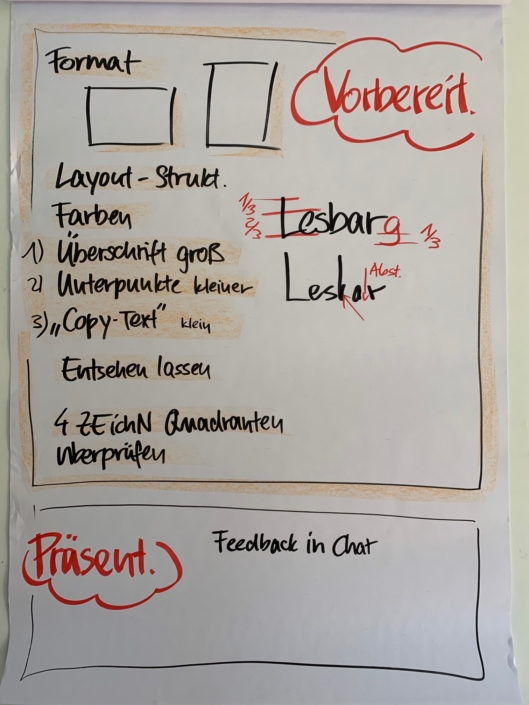 Format
Vorbereit.
Layout-Strukt.
Farben
1/3
2/3
Lesbarg
1/3
1) Überschrift groß
2) Unterpunkte kleiner
Abst.
Lesbar
3) „Copy-Text" klein
Entsehen lassen
4 ZEichN Quadranten
überprüfen
Präsent.
Feedback in Chat